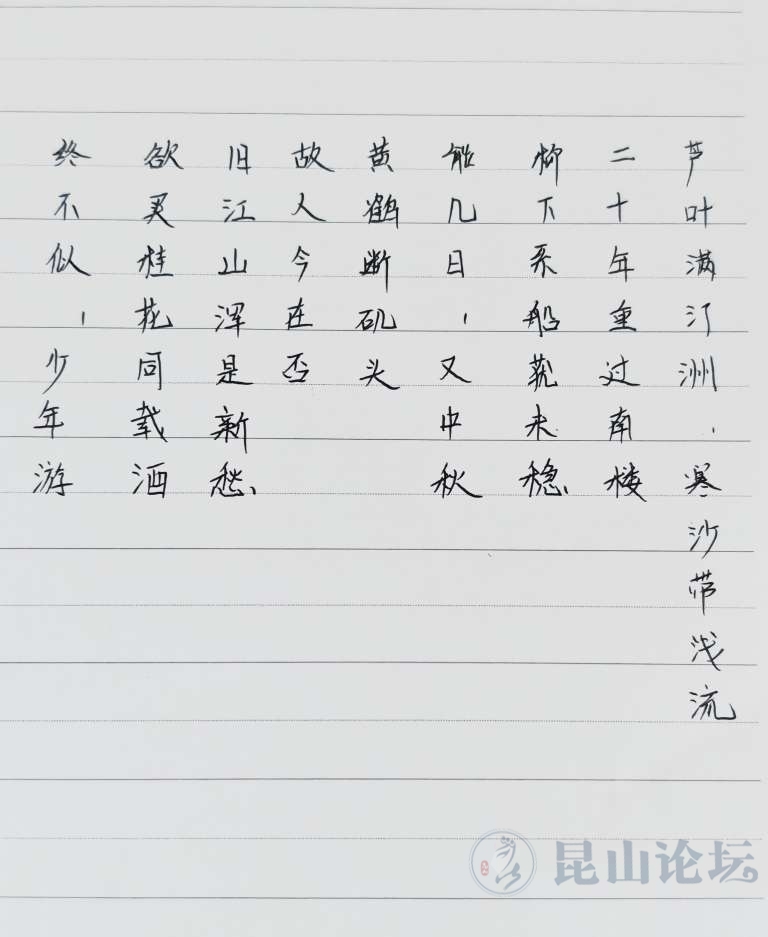 芦叶满汀洲，寒沙带浅流
二十年重过南楼
柳下系船犹未稳、
能几日，又中秋
黄鹤断矶头
故人今在否
旧江山浑是新愁、
欲买桂花同载酒
终不似，少年游
昆山论坛